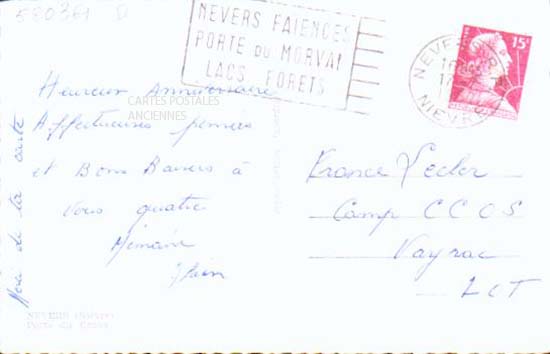 580361 D
NEVERS FAIENCES
PORTE DU MORVAN
LACS FORETS
15F
NEVERS
NIEVRE
CARTES POSTALES
ANCIENNES
Heureux Anniversaire
Affectueuses pensées
et Bons Baisers à
Vous quatre
Mémaine
de ta carte
France Lecler
Camp CCOS
Vayrac
LOT
NEVERS (Nièvre)
Porte du Croux